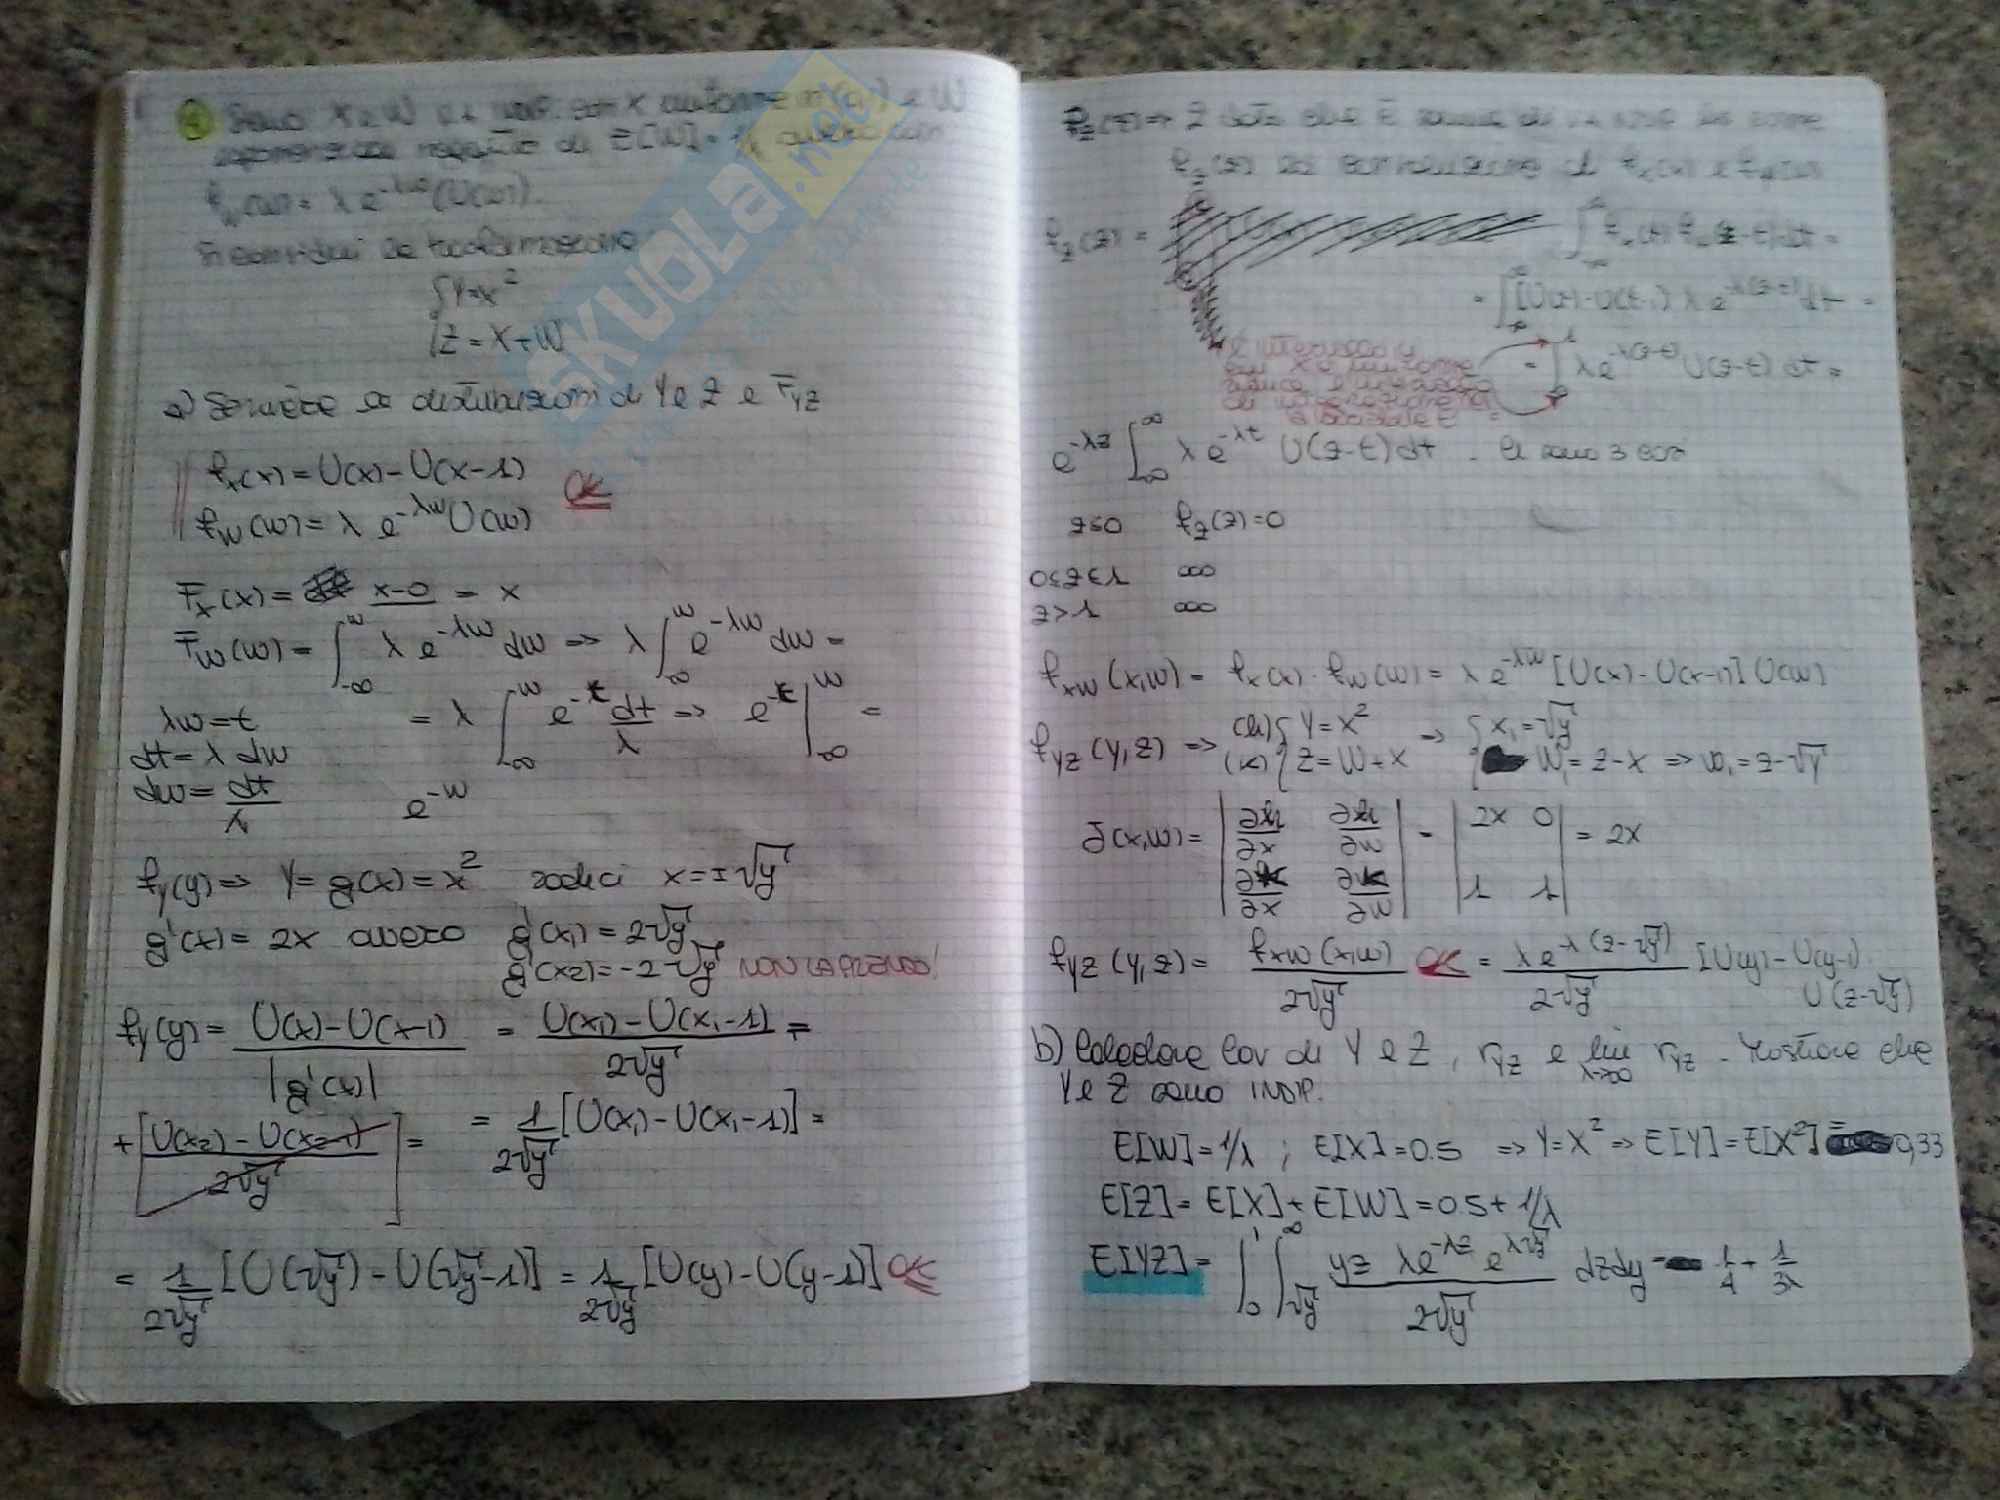 Siano X e W v.a. indip. con X uniforme in (0,1) e W
esponenziale negativa di E[W] = 1/λ avente con
f_W(w) = λ e^{-λw} (U(w)).
Si consideri la trasformazione
{ Y = X²
{ Z = X+W
a) Scrivere le distribuzioni di Y e Z e F_YZ
f_X(x) = U(x) - U(x-1)
OK
f_W(w) = λ e^{-λw} U(w)
F_X(x) = x-0 = x
F_W(w) = ∫_{-∞}^{w} λ e^{-λw} dw => λ ∫_{∞}^{w} e^{-λw} dw =
λw = t
= λ ∫_{∞}^{w} e^{-t} dt/λ => e^{-t} |_{∞}^{w} =
dt = λ dw
dw = dt/λ
e^{-w}
f_Y(y) => Y = g(x) = x² radici x = ±√y
g'(x) = 2x avero g'(x₁) = 2√y
g'(x₂) = -2√y NON LA PRENDO!
f_Y(y) = U(x) - U(x-1) / |g'(x)| = U(x₁) - U(x₁-1) / 2√y =
+ [U(x₂) - U(x₂-1) / 2√y] = = 1/2√y [U(x₁) - U(x₁-1)] =
= 1/2√y [U(√y) - U(√y-1)] = 1/2√y [U(y) - U(y-1)] OK
f_Z(z) => Z dato che è somma di
f_Z(z) convoluzione di f_X(x) e f_W(w)
f_Z(z) = ∫_{-∞}^{∞} f_X(t) f_W(z-t) dt =
= ∫_{-∞}^{∞} [U(t) - U(t-1)] λ e^{-λ(z-t)} dt =
= ∫_{0}^{1} λ e^{-λ(z-t)} U(z-t) dt =
e^{-λz} ∫_{∞}^{∞} λ e^{-λt} U(z-t) dt. Ci sono 3 casi
z≤0 f_Z(z) = 0
0≤z≤1 ∞
z>1 ∞
f_XW(x,w) = f_X(x) · f_W(w) = λ e^{-λw} [U(x) - U(x-1)] U(w)
f_YZ(y,z) => (h) { Y = X² => { X₁ = √y
(k) { Z = W+X { W₁ = Z-X => W₁ = Z-√y
J(x,w) = | ∂h/∂x ∂h/∂w | = | 2x 0 | = 2x
| ∂k/∂x ∂k/∂w | | 1 1 |
f_YZ(y,z) = f_XW(x,w) / 2√y OK = λ e^{-λ(z-√y)} / 2√y [U(y) - U(y-1)]
U(z-√y)
b) Calcolare Cov di Y e Z, r_YZ e lim_{λ→∞} r_YZ. Mostrare che
Y e Z sono INDIP.
E[W] = 1/λ ; E[X] = 0.5 => Y = X² => E[Y] = E[X²] = 0,33
E[Z] = E[X] + E[W] = 0.5 + 1/λ
E[YZ] = ∫_{0}^{1} ∫_{√y}^{∞} yz λe^{-λz} e^{λ√y} / 2√y dz dy = 1/4 + 1/3λ